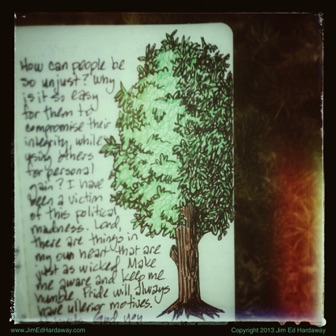 How can people be
so unjust? Why
is it so easy
for them to
compromise their
integrity, while
using others
for personal
gain? I have
been a victim
of this political
madness. Lord,
there are things in
my own heart that are
just as wicked. Make
me aware and keep me
humble. Pride will always
have ulterior motives.
www.JimEdHardaway.com
Copyright 2013 Jim Ed Hardaway